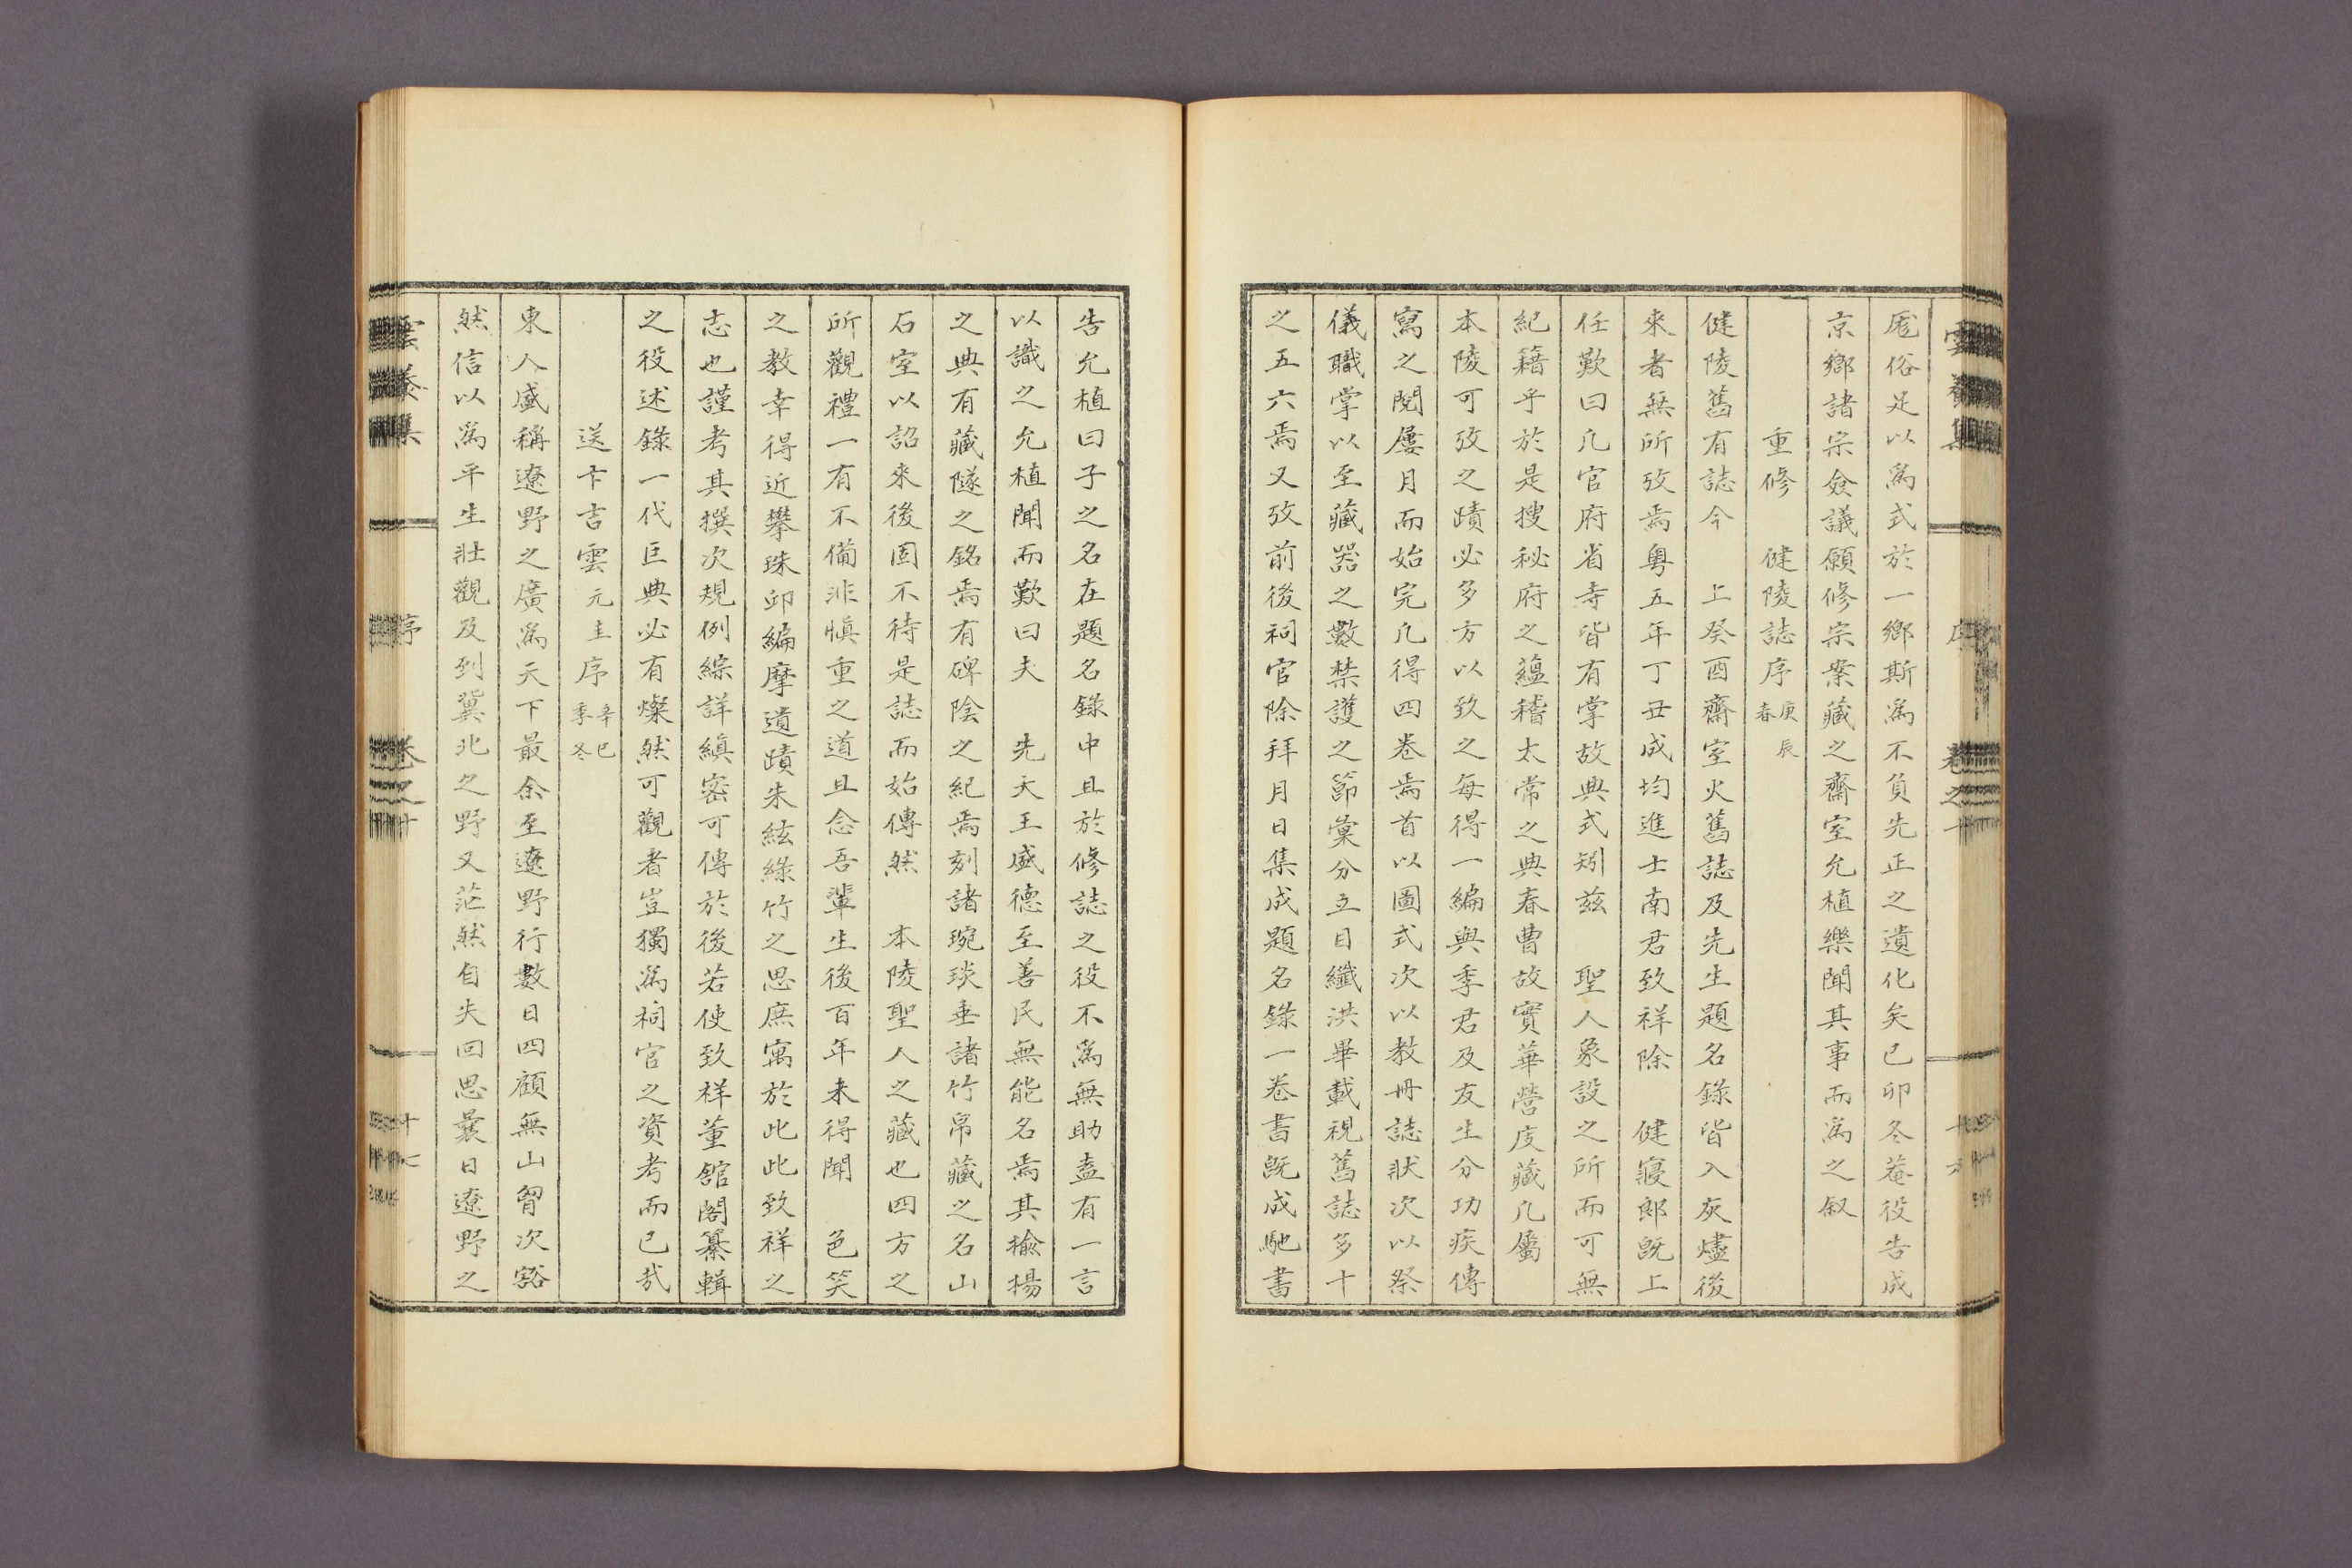 厖俗足以爲式於一鄕斯爲不負先正之遺化矣己卯冬菴役告成
京鄕諸宗僉議願修宗案藏之齋室允植樂聞其事而爲之叙
重修 健陵誌序 庚辰春
健陵舊有誌今 上癸酉齋室火舊誌及先生題名錄皆入灰燼後
來者無所攷焉粤五年丁丑成均進士南君致祥除 健寢郞旣上
任歎曰凡官府省寺皆有掌故典式矧玆 聖人象設之所而可無
紀籍乎於是搜秘府之蘊稽太常之典春曹故實華營庋藏凡屬
本陵可攷之蹟必多方以致之每得一編與季君及友生分功疾傳
寫之閱屢月而始完凡得四卷焉首以圖式次以敎冊誌狀次以祭
儀職掌以至藏器之數禁護之節彙分五目纖洪畢載視舊誌多十
之五六焉又攷前後祠官除拜月日集成題名錄一卷書旣成馳書
告允植曰子之名在題名錄中且於修誌之役不爲無助盍有一言
以識之允植聞而歎曰夫 先天王盛德至善民無能名焉其揄揚
之典有藏隧之銘焉有碑陰之紀焉刻諸琬琰垂諸竹帛藏之名山
石室以詔來後固不待是誌而始傳然 本陵聖人之藏也四方之
所觀禮一有不備非愼重之道且念吾輩生後百年未得聞 色笑
之教幸得近攀珠邱編摩遺蹟朱絃綠竹之思庶寓於此此致祥之
志也謹考其撰次規例綜詳縝密可傳於後若使致祥董舘閣纂輯
之役述錄一代巨典必有燦然可觀者豈獨爲祠官之資考而已哉
送卞吉雲元圭序 辛巳季冬
東人盛稱遼野之廣爲天下最余至遼野行數日四顧無山胷次豁
然信以爲平生壯觀及到冀北之野又茫然自失回思曩日遼野之
雲養集 序 卷之十 十七